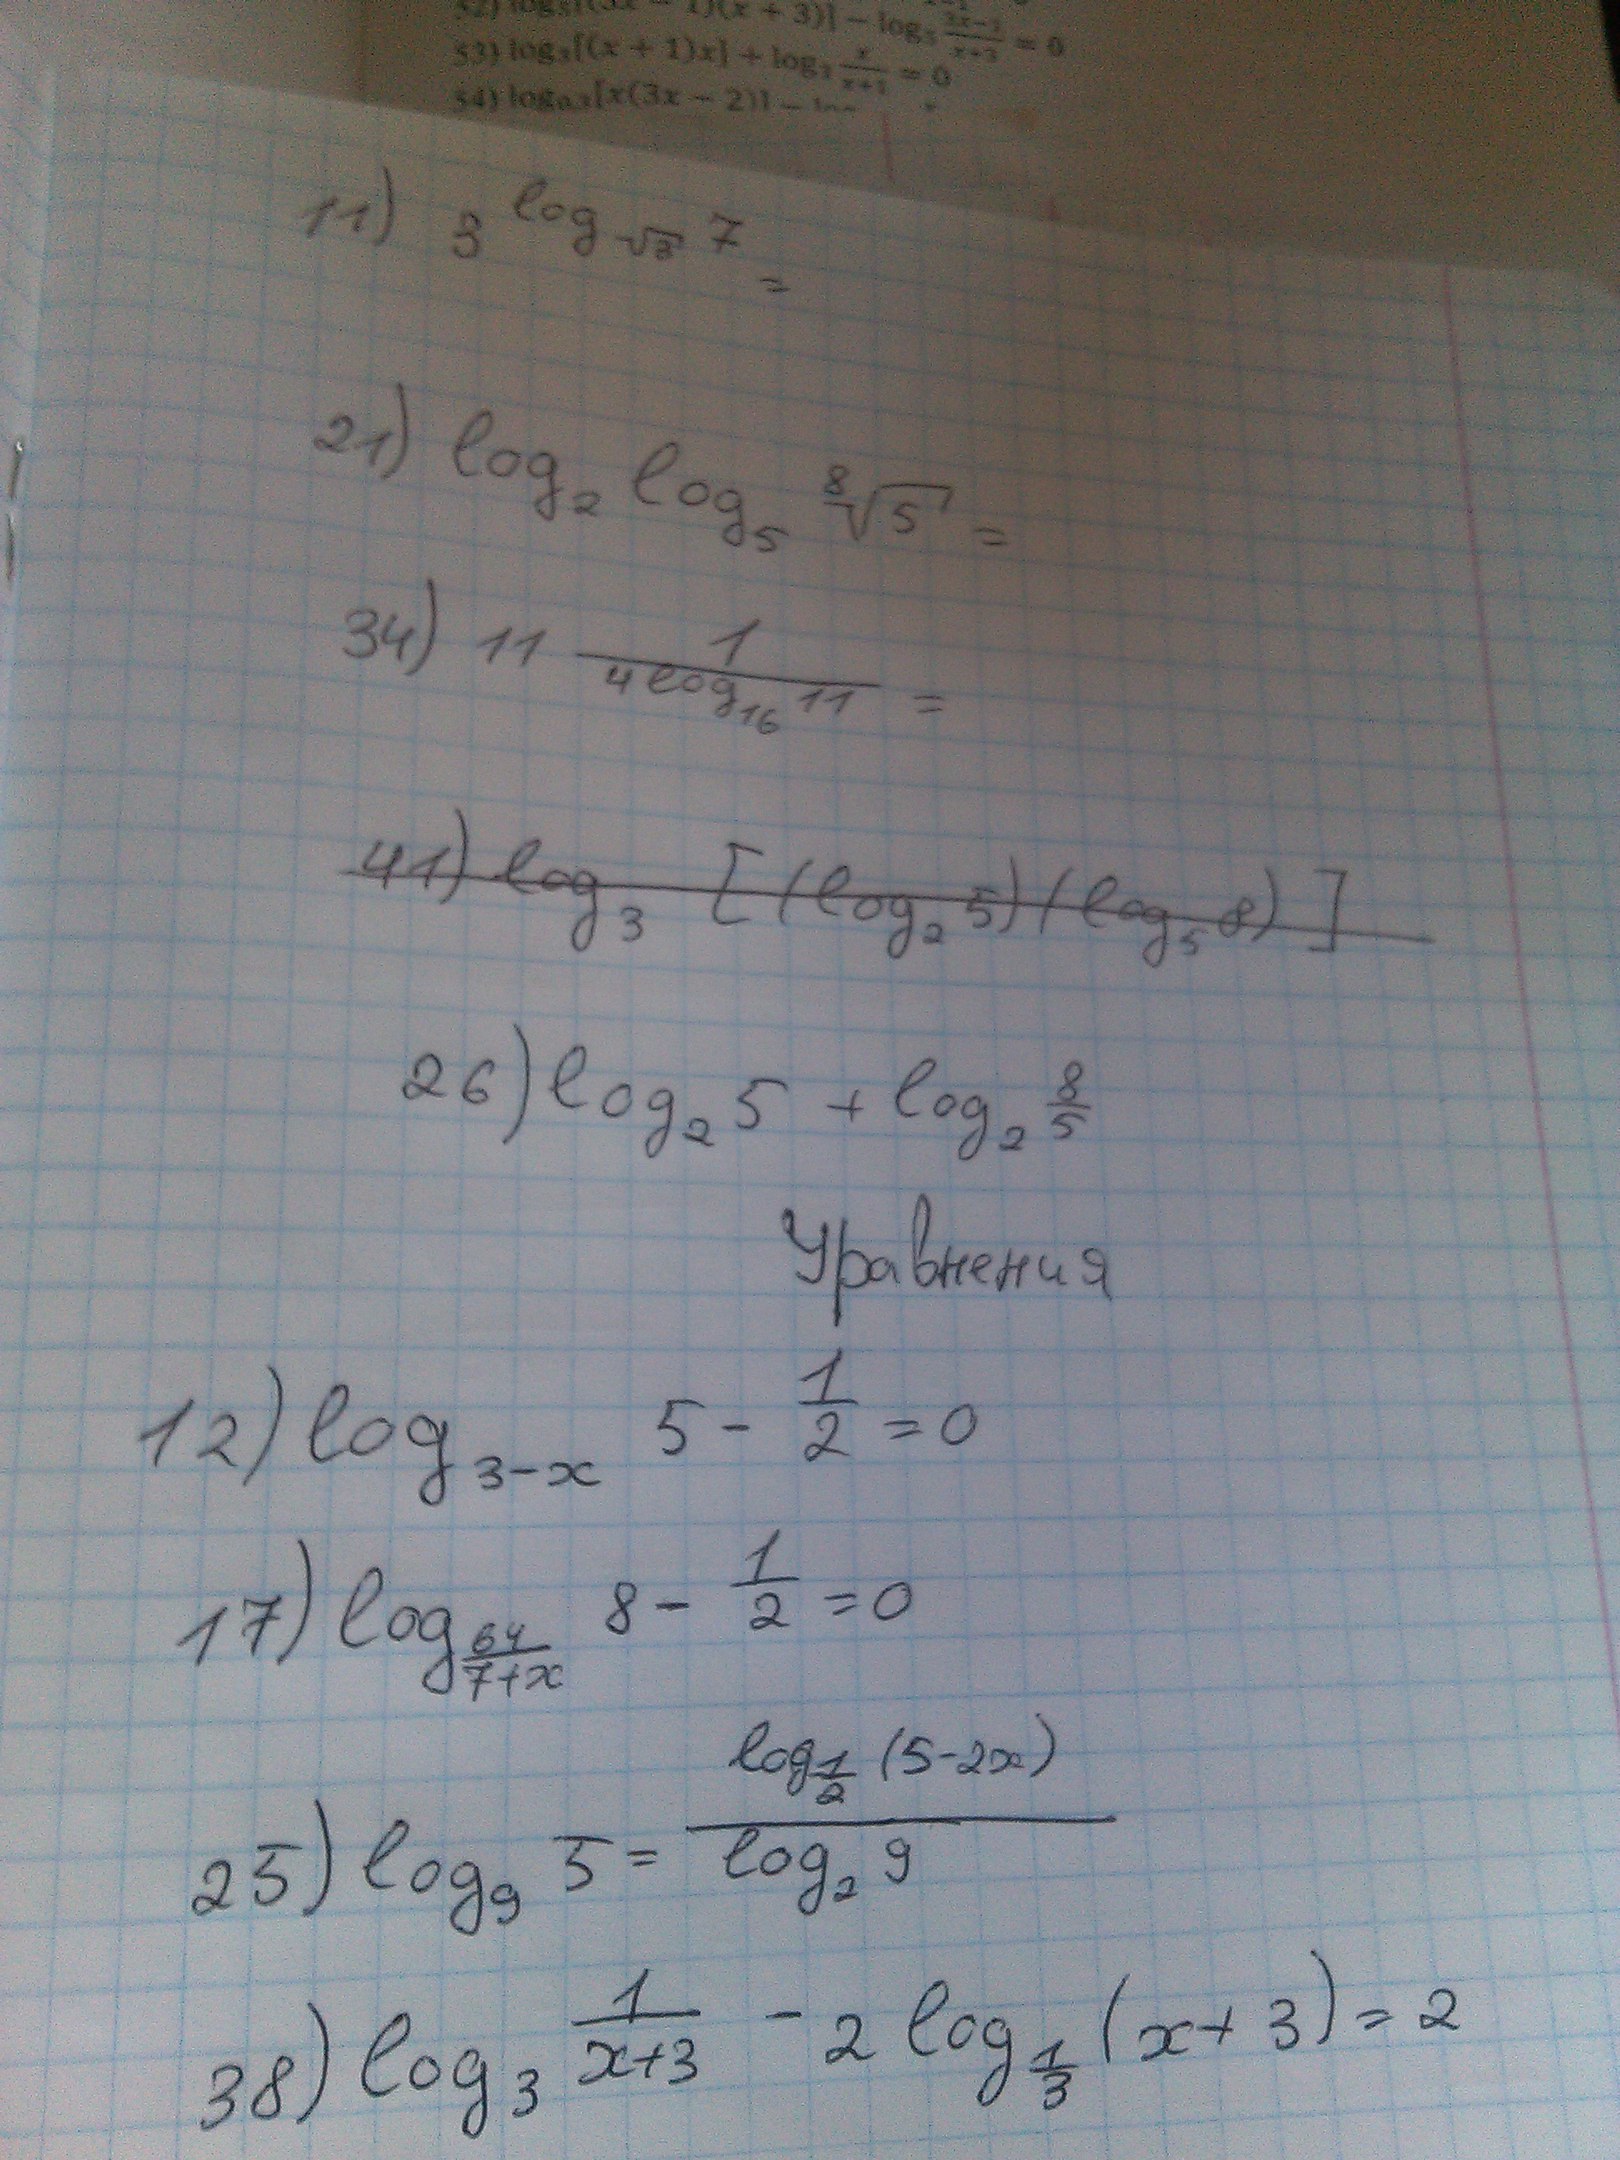 52) log₃[(3x − 1)(x + 3)] − log₃ (3x−1)/(x+3) = 0
53) log₃[(x + 1)x] + log₃ x/(x+1) = 0
54) log₀,₃[x(3x − 2)] −
11) 3^(log_√3 7) =
21) log₂ log₅ ⁸√5 =
34) 11^(1/(4log₁₆ 11)) =
41) log₃ [(log₂ 5)(log₅ 8)]
26) log₂ 5 + log₂ 8/5
Уравнения
12) log_(3−x) 5 − 1/2 = 0
17) log_(64/(7+x)) 8 − 1/2 = 0
25) log₉ 5 = log_(1/2) (5−2x) / log₂ 9
38) log₃ 1/(x+3) − 2 log_(1/3) (x+3) = 2